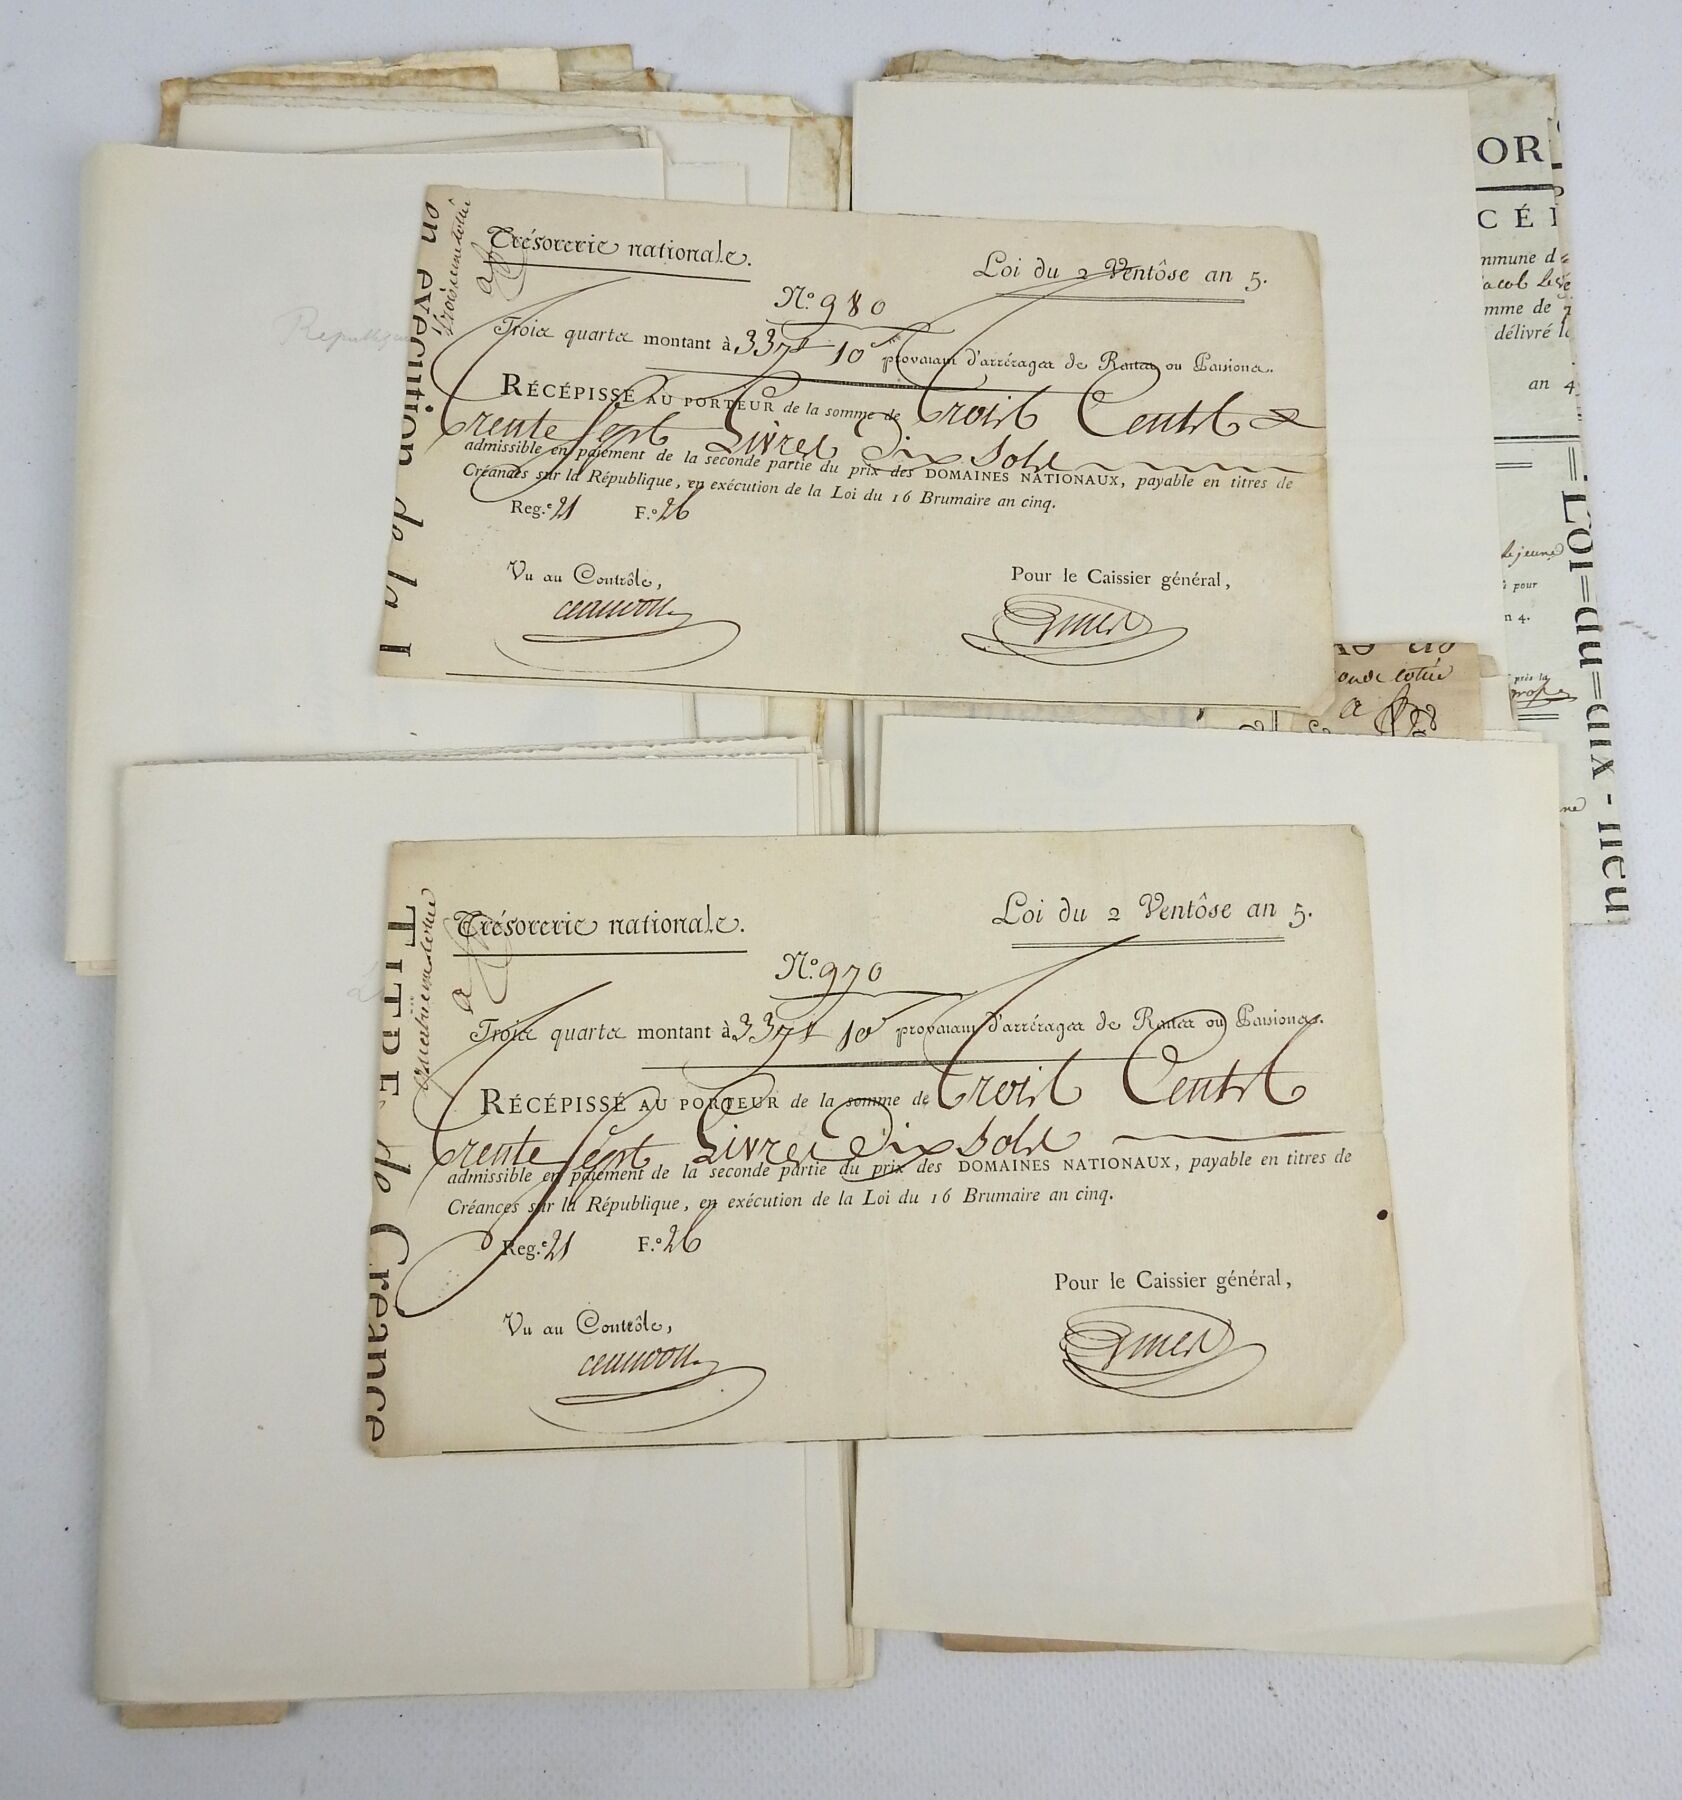 Républiq
OR
CÉ
mmune d
acob Le
mme de
délivré l
an 4
le jeune
pour
n 4.
près la
Loi=du=dix-neu
on evecution de la L
Troisieme cottée
a
Trésorerie nationale.
Loi du 2 Ventôse an 5.
N.º 980
Trois quarts montant à 337tt 10s provenant d'arrérages de Rentes ou Pensions.
RÉCÉPISSÉ AU PORTEUR de la somme de Trois Cents
trente Sept Livres Dix Sols
admissible en paiement de la seconde partie du prix des DOMAINES NATIONAUX, payable en titres de
Créances sur la République, en exécution de la Loi du 16 Brumaire an cinq.
Reg.e 21 F.º 26
Vu au Contrôle,
Pour le Caissier général,
cottée
a
TITRE de Créance
cottée
a
Trésorerie nationale.
Loi du 2 Ventôse an 5.
N.º 970
Trois quarts montant à 337tt 10s provenant d'arrérages de Rentes ou Pensions.
RÉCÉPISSÉ AU PORTEUR de la somme de Trois Cents
trente Sept Livres Dix Sols
admissible en paiement de la seconde partie du prix des DOMAINES NATIONAUX, payable en titres de
Créances sur la République, en exécution de la Loi du 16 Brumaire an cinq.
Reg.e 21 F.º 26
Pour le Caissier général,
Vu au Contrôle,